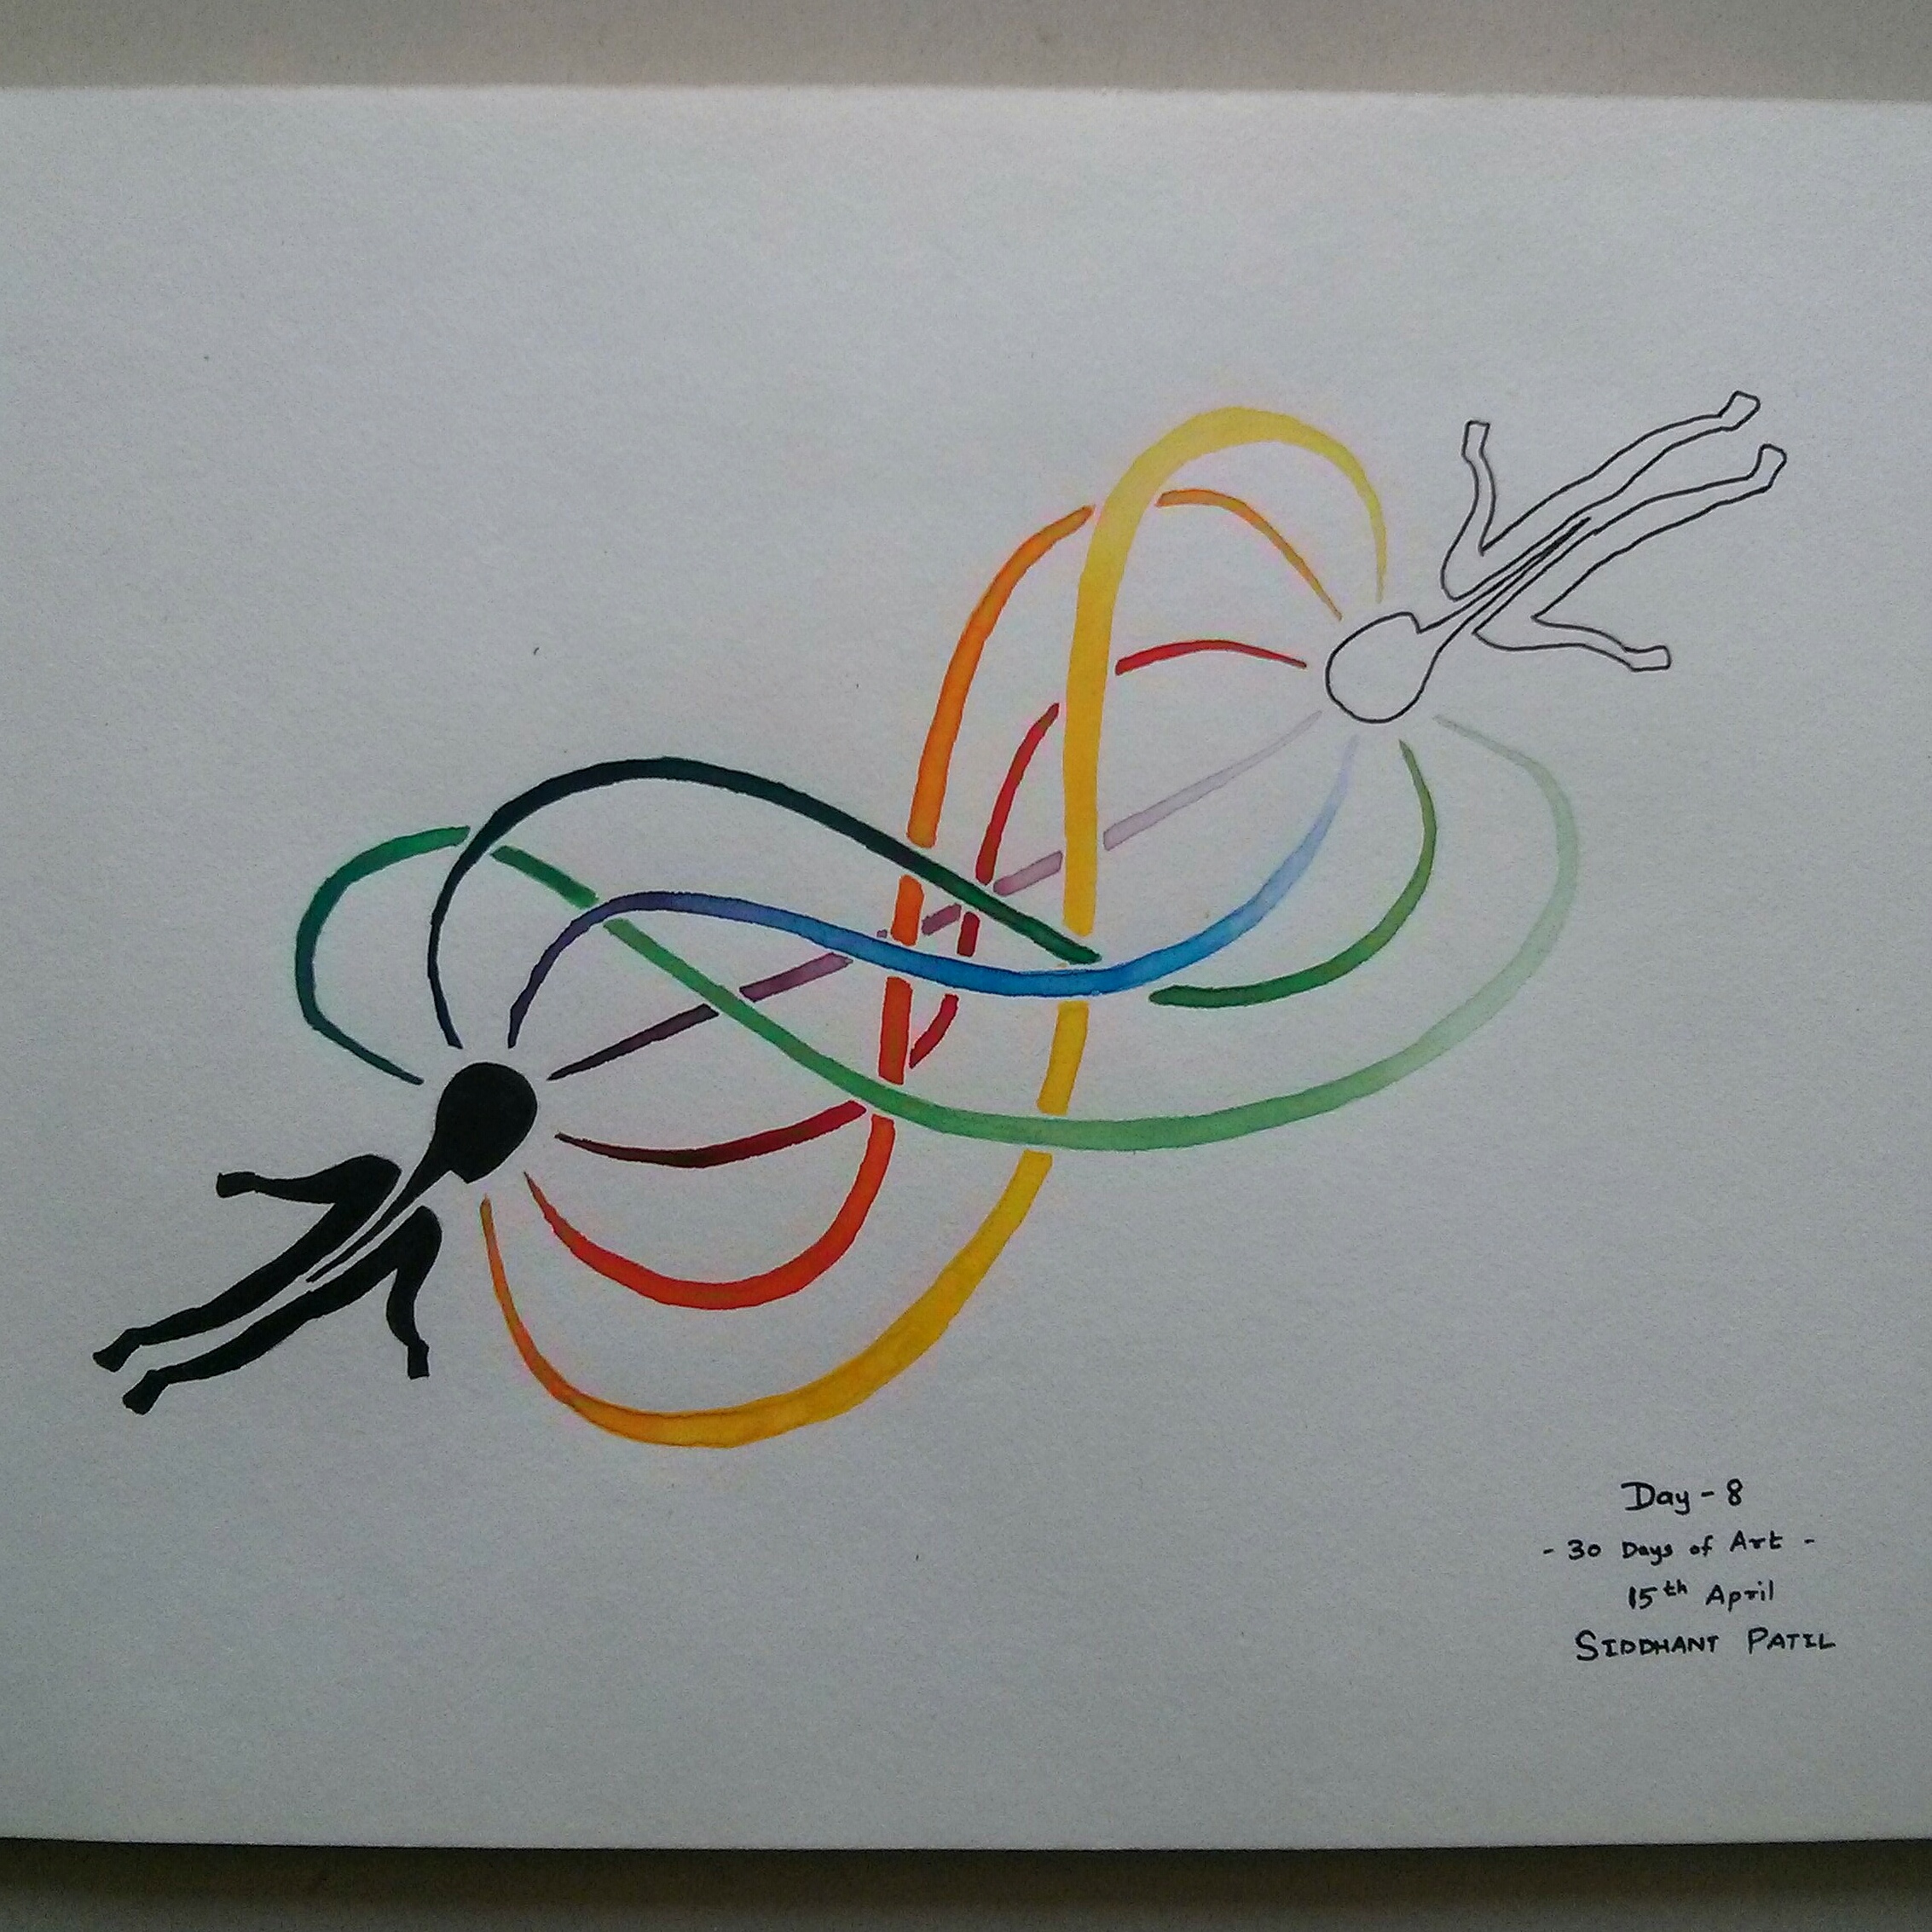 Day - 8
- 30 Days of Art -
15th April
SIDDHANT PATIL